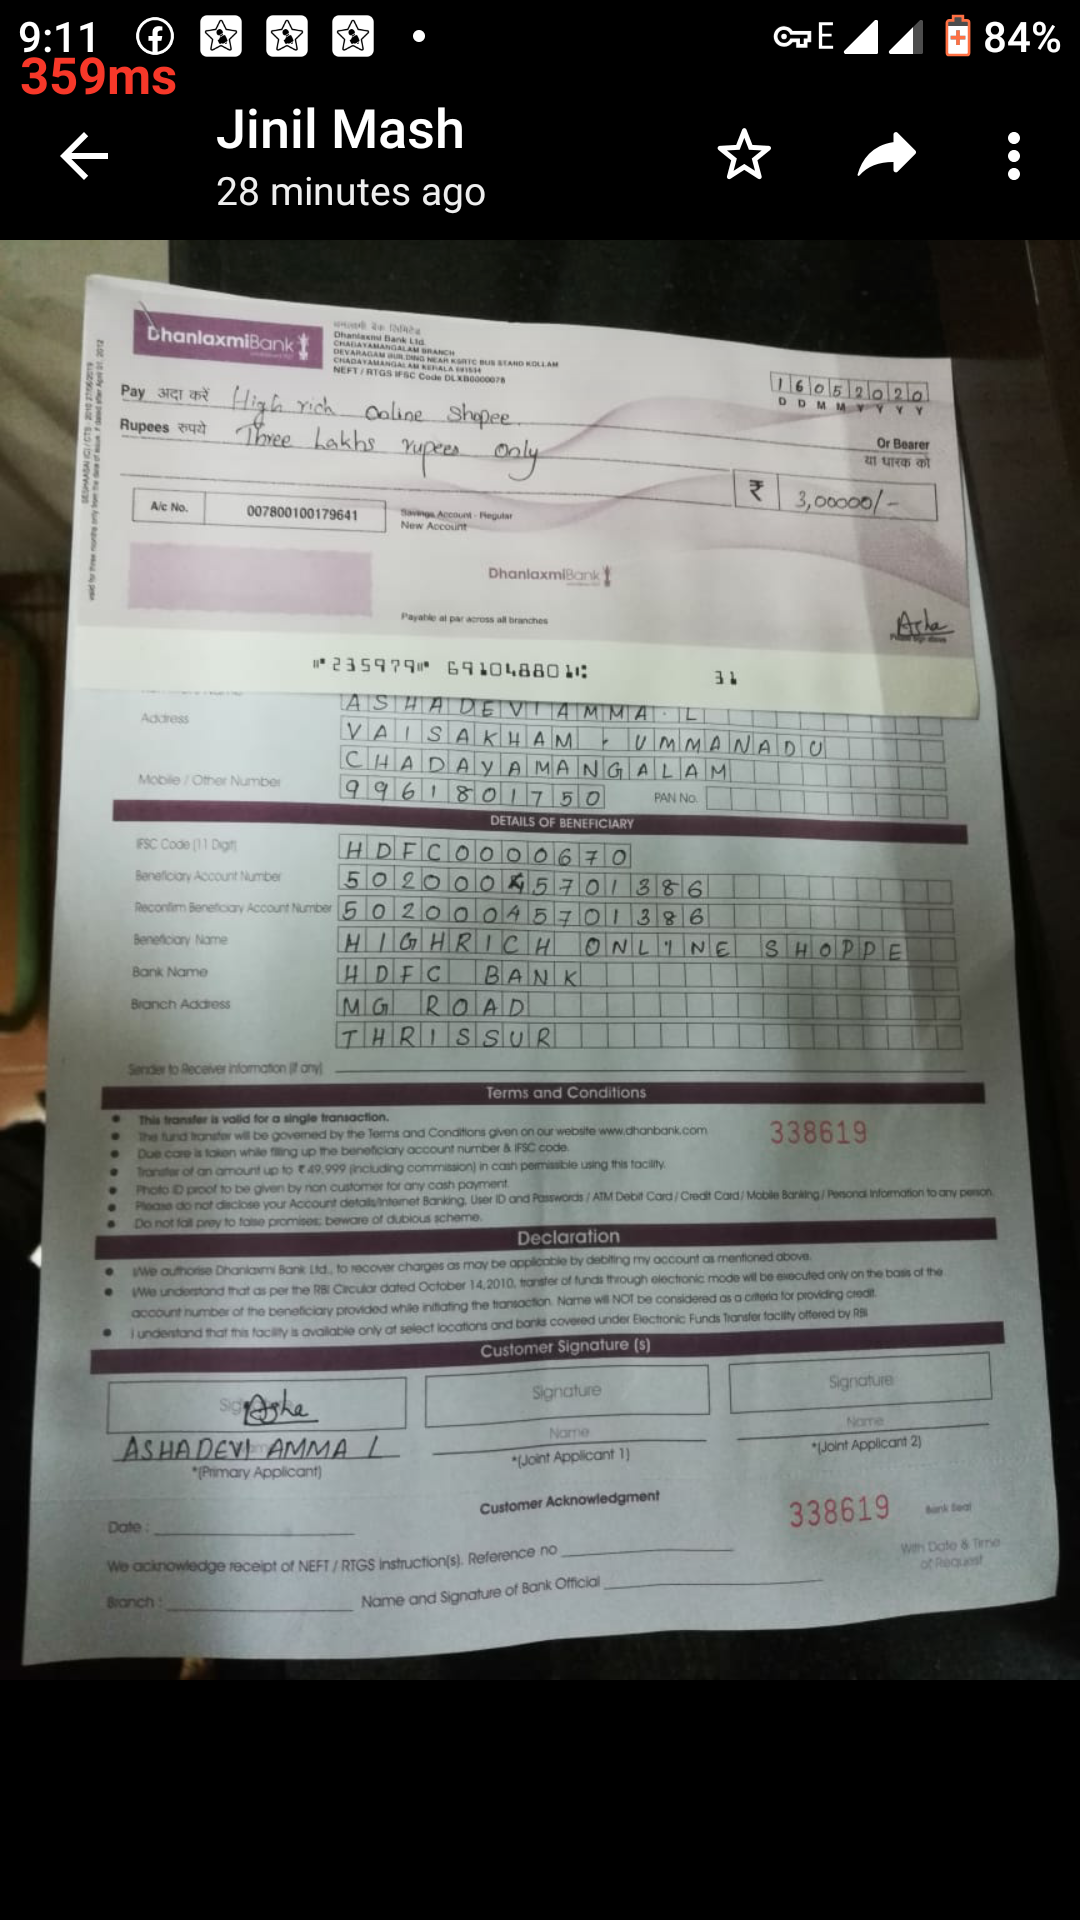 9:11
E
84%
359ms
Jinil Mash
28 minutes ago
DhanlaxmiBank
Dhanlaxmi Bank Ltd.
CHADAYAMANGALAM BRANCH
DEVARAGAM BUILDING NEAR KSRTC BUS STAND KOLLAM
CHADAYAMANGALAM KERALA 691534
NEFT / RTGS IFSC Code DLXB0000078
16052020
D D M M Y Y Y Y
Pay अदा करें High rich Online Shopee
Or Bearer
या धारक को
Rupees रुपये Three Lakhs rupees only
₹ 3,00000/-
A/c No. 007800100179641
Savings Account - Regular
New Account
DhanlaxmiBank
Payable at par across all branches
Asha
Please sign above
⑈235979⑈ 691048801⑆ 31
ASHADEVIAMMA. L
Address VAISAKHAM, UMMANADU
CHADAYAMANGALAM
Mobile / Other Number 9961801750 PAN No.
DETAILS OF BENEFICIARY
IFSC Code (11 Digit) HDFC0000670
Beneficiary Account Number 50200045701386
Reconfirm Beneficiary Account Number 50200045701386
Beneficiary Name HIGHRICH ONLINE SHOPPE
Bank Name HDFC BANK
Branch Address MG ROAD
THRISSUR
Sender to Receiver information (if any)
Terms and Conditions
This transfer is valid for a single transaction.
The fund transfer will be governed by the Terms and Conditions given on our website www.dhanbank.com
338619
Due care is taken while filling up the beneficiary account number & IFSC code.
Transfer of an amount up to ₹ 49,999 (including commission) in cash permissible using this facility.
Photo ID proof to be given by non customer for any cash payment.
Please do not disclose your Account details/Internet Banking, User ID and Passwords / ATM Debit Card / Credit Card / Mobile Banking / Personal Information to any person.
Do not fall prey to false promises; beware of dubious scheme.
Declaration
I/We authorise Dhanlaxmi Bank Ltd., to recover charges as may be applicable by debiting my account as mentioned above.
I/We understand that as per the RBI Circular dated October 14,2010, transfer of funds through electronic mode will be executed only on the basis of the
account number of the beneficiary provided while initiating the transaction. Name will NOT be considered as a criteria for providing credit.
I understand that this facility is available only at select locations and banks covered under Electronic Funds Transfer facility offered by RBI
Customer Signature (s)
Asha
Signature
Signature
ASHADEVI AMMA L
Name
Name
*(Primary Applicant)
*(Joint Applicant 1)
*(Joint Applicant 2)
Customer Acknowledgment
338619
Bank Seal
Date :
With Date & Time
of Request
We acknowledge receipt of NEFT / RTGS instruction(s). Reference no
Branch :
Name and Signature of Bank Official